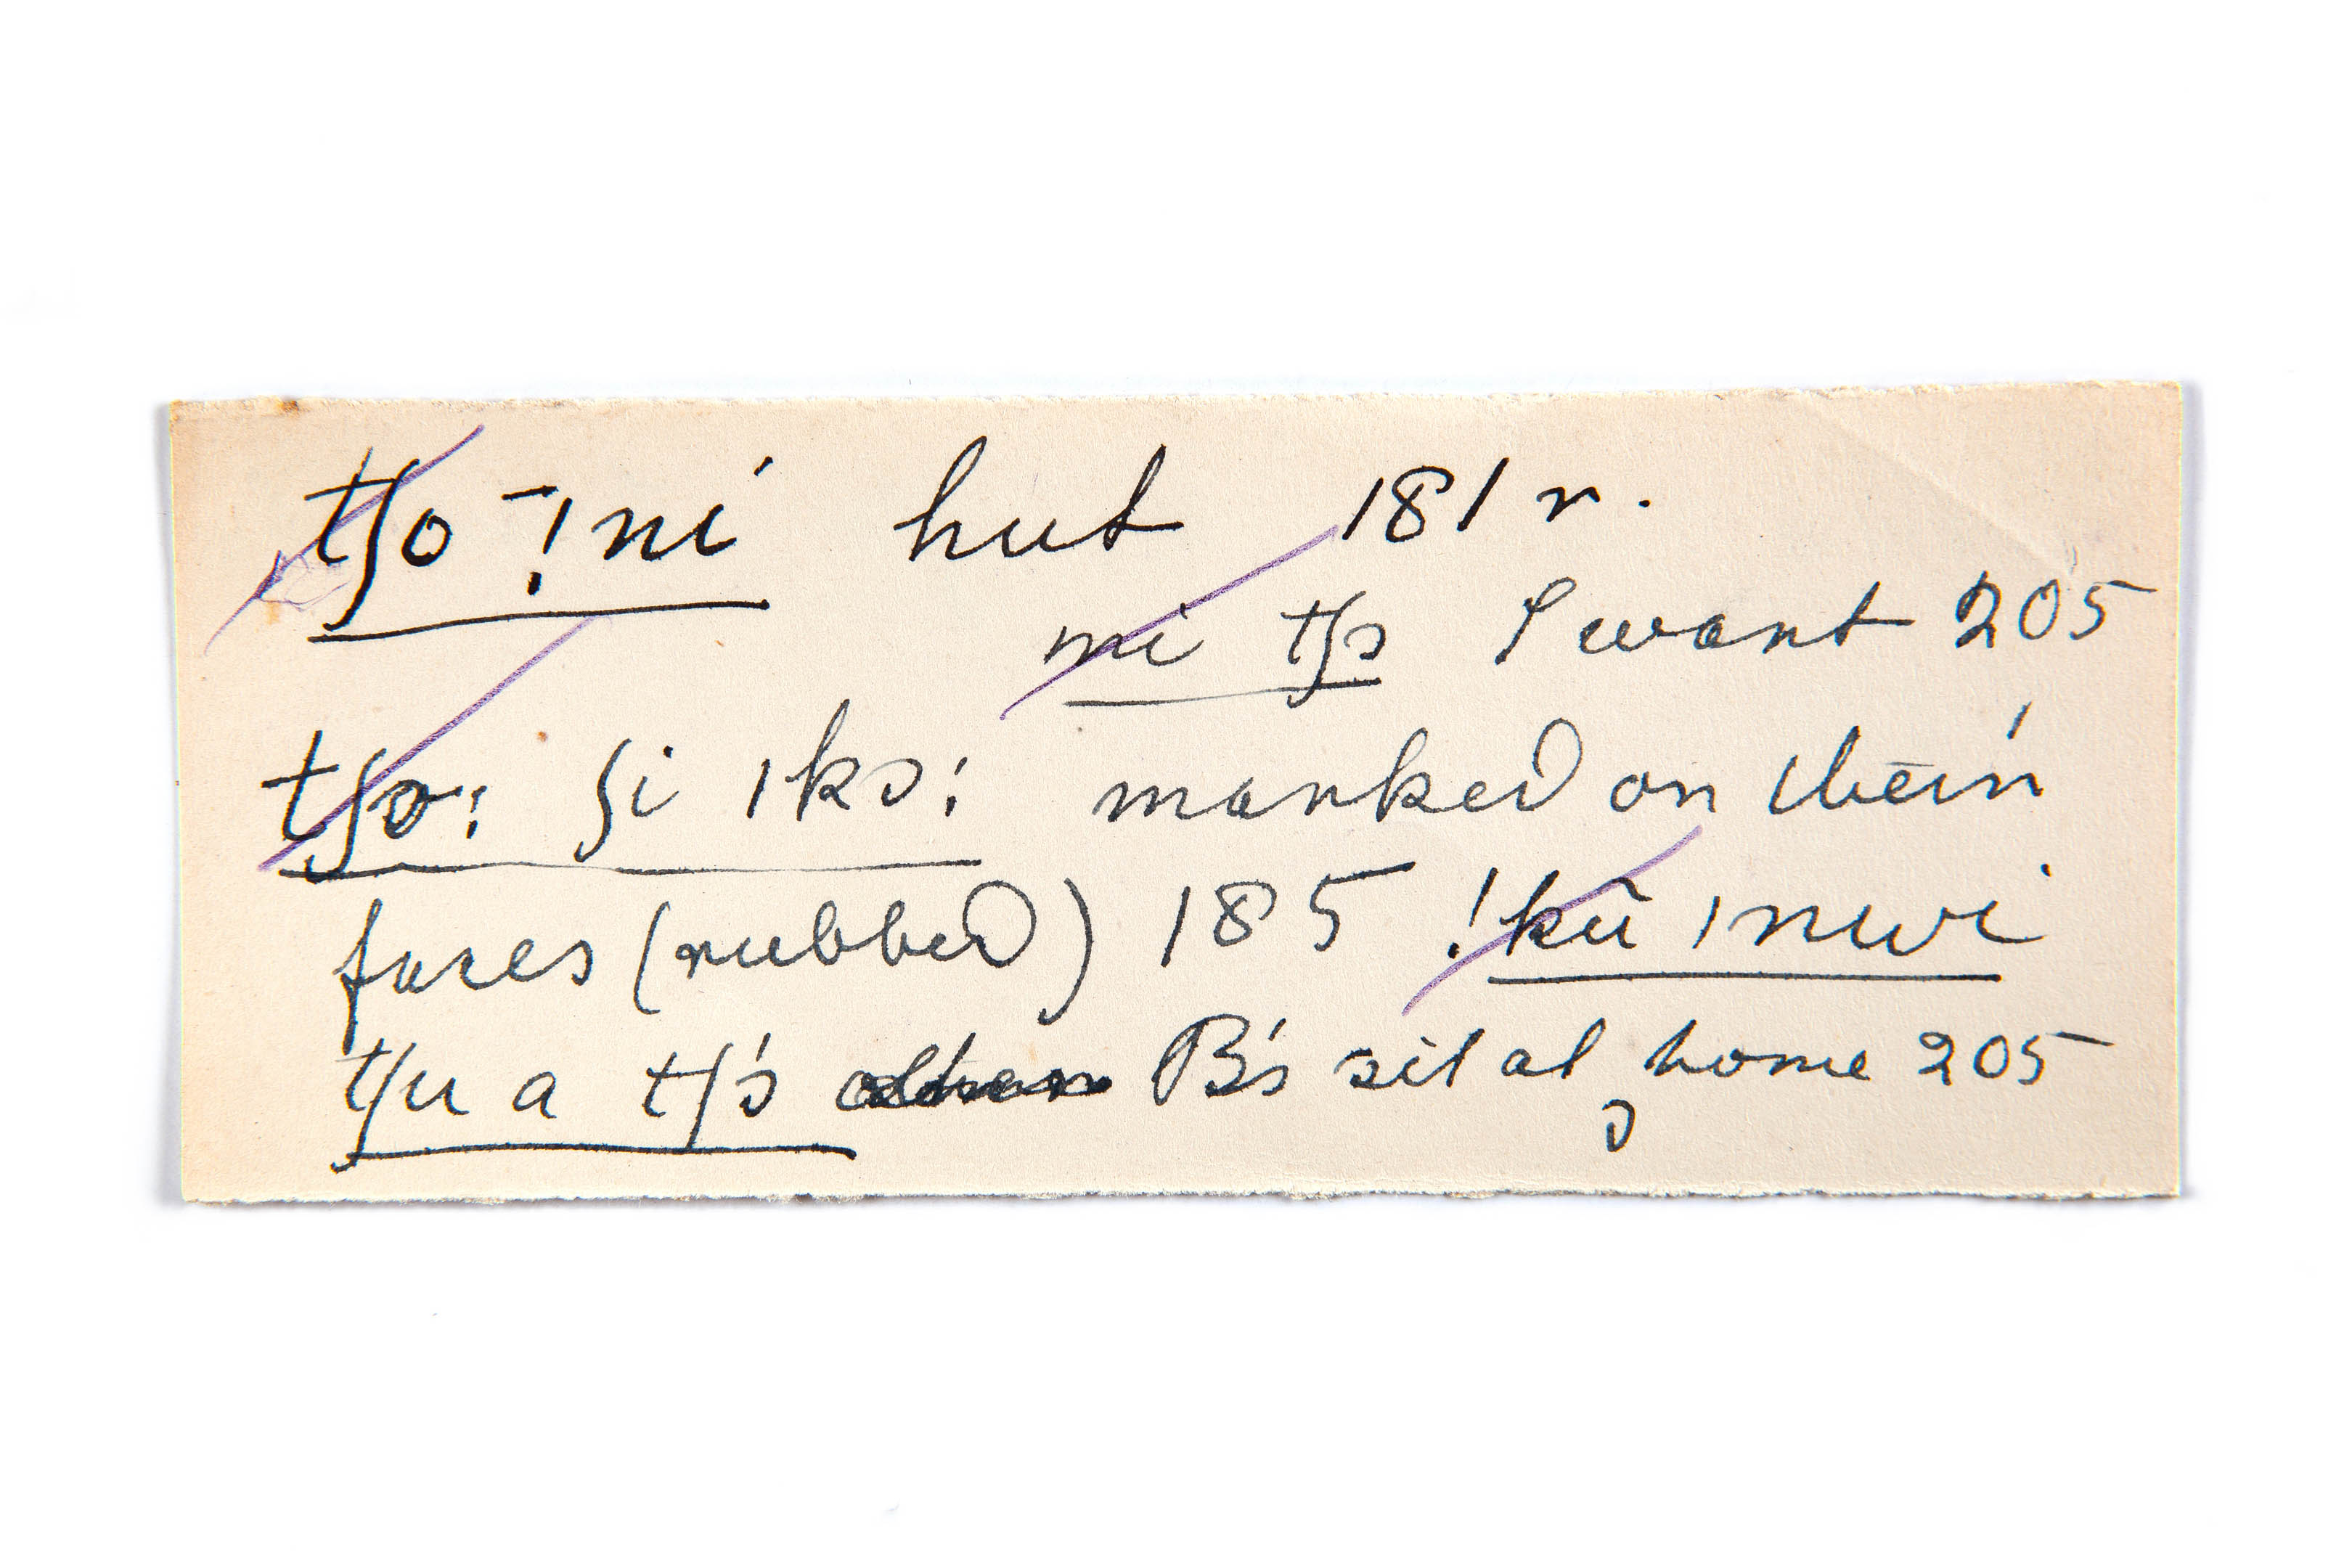 tʃo ǃni hut 181 r.
ni tʃɔ I want 205
tʃɔ: ʃi ǀkɔ: marked on their
faces (rubbed) 185 ǃkū ǀnwi
tʃu a tʃɔ B's sit at home 205